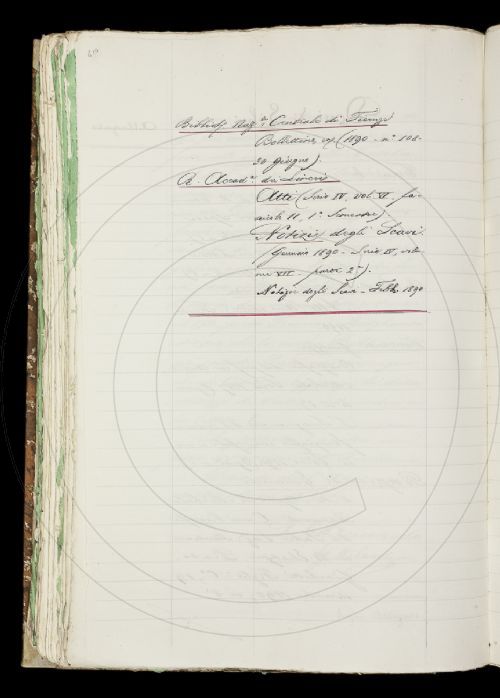 Bibliot. Naz.le Centrale di Firenze
Bollettino, ec. (1890 - n° 108
30 Giugno).
R. Accad.a dei Lincei
Atti (Serie IV, vol. VI, fa-
scicolo 11, 1° Semestre)
Notizie degli Scavi
(Gennaio 1890 - Serie IV, volu-
me VII - parte 2a).
Notizie degli Scavi - Febb. 1890